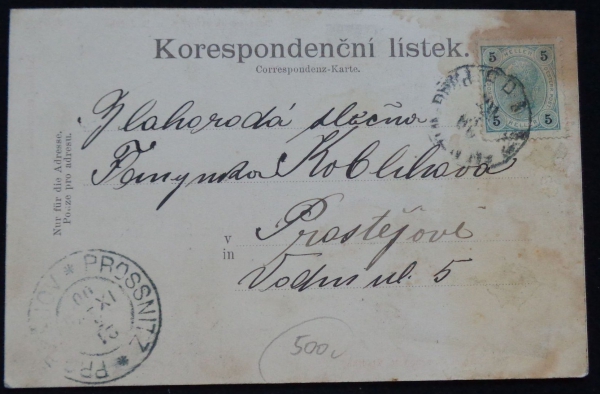 Korespondenční lístek.
Correspondenz-Karte.
5 5
5 5
Nur für die Adresse.
Pouze pro adresu.
Blahorodá slečna
Koblihová
v Prostějově
in
Vodní ul. 5
* PROSSNITZ *
21
IX
00
500,